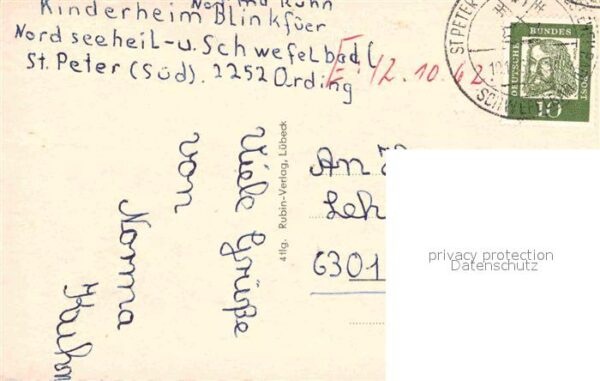 Norma Kuhn
Kinderheim Blinkfüer
Nordseeheil-u. Schwefelbad
St. Peter (Süd). 2252 Ording
E: 12.10.62
ST. PETER
DEUTSCHE BUNDESPOST
10
Viele Grüße
von
Norma
Kuhn
4flg. Rubin-Verlag, Lübeck
An
Leh
6301
privacy protection
Datenschutz